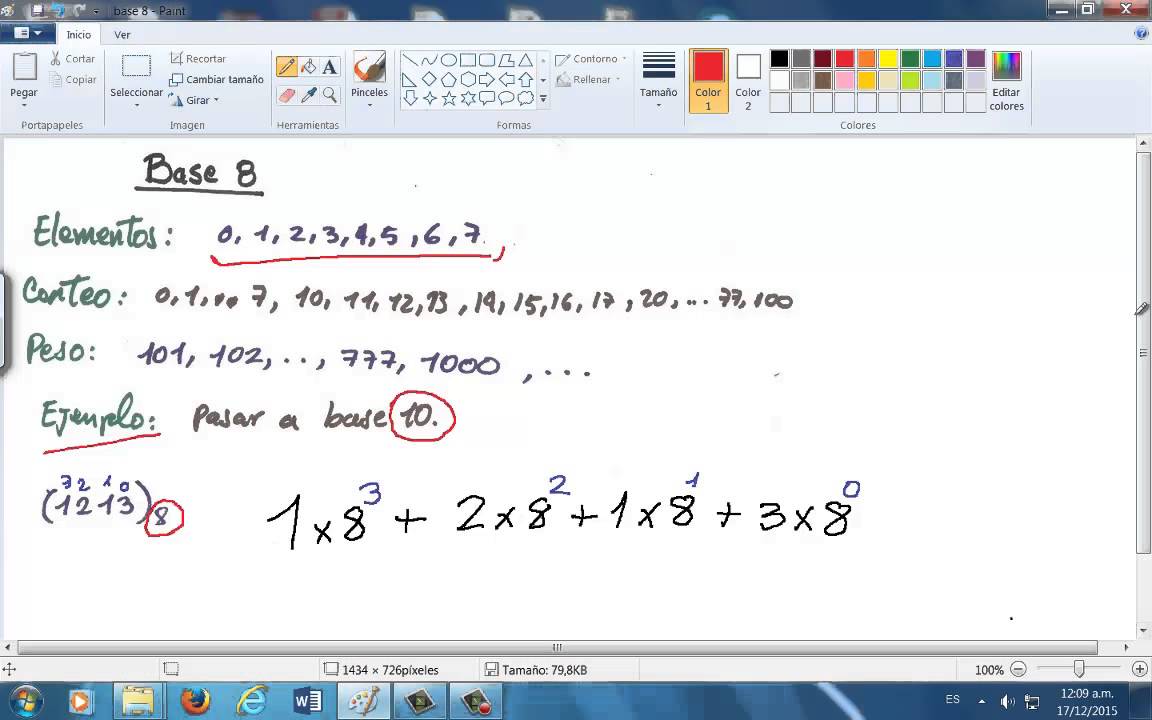 base 8 - Paint
Inicio Ver
Pegar
Cortar
Copiar
Portapapeles
Seleccionar
Recortar
Cambiar tamaño
Girar
Imagen
A
Herramientas
Pinceles
Contorno
Rellenar
Formas
Tamaño
Color 1
Color 2
Editar colores
Colores
Base 8
Elementos: 0, 1, 2, 3, 4, 5, 6, 7.,
Conteo: 0, 1, ... 7, 10, 11, 12, 13, 14, 15, 16, 17, 20, ... 77, 100
Peso: 101, 102, .., 777, 1000, ...
Ejemplo: Pasar a base 10.
3 2 1 0
(1213)₈ 1 x 8³ + 2 x 8² + 1 x 8¹ + 3 x 8⁰
1434 × 726píxeles Tamaño: 79,8KB 100%
W ES 12:09 a.m.
17/12/2015